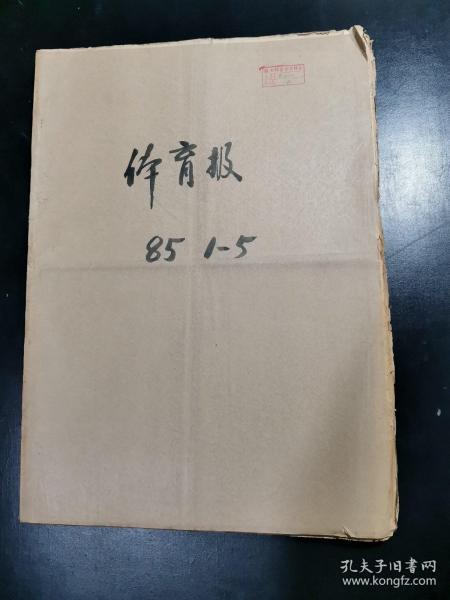 体育报
85 1-5
孔夫子旧书网
www.kongfz.com